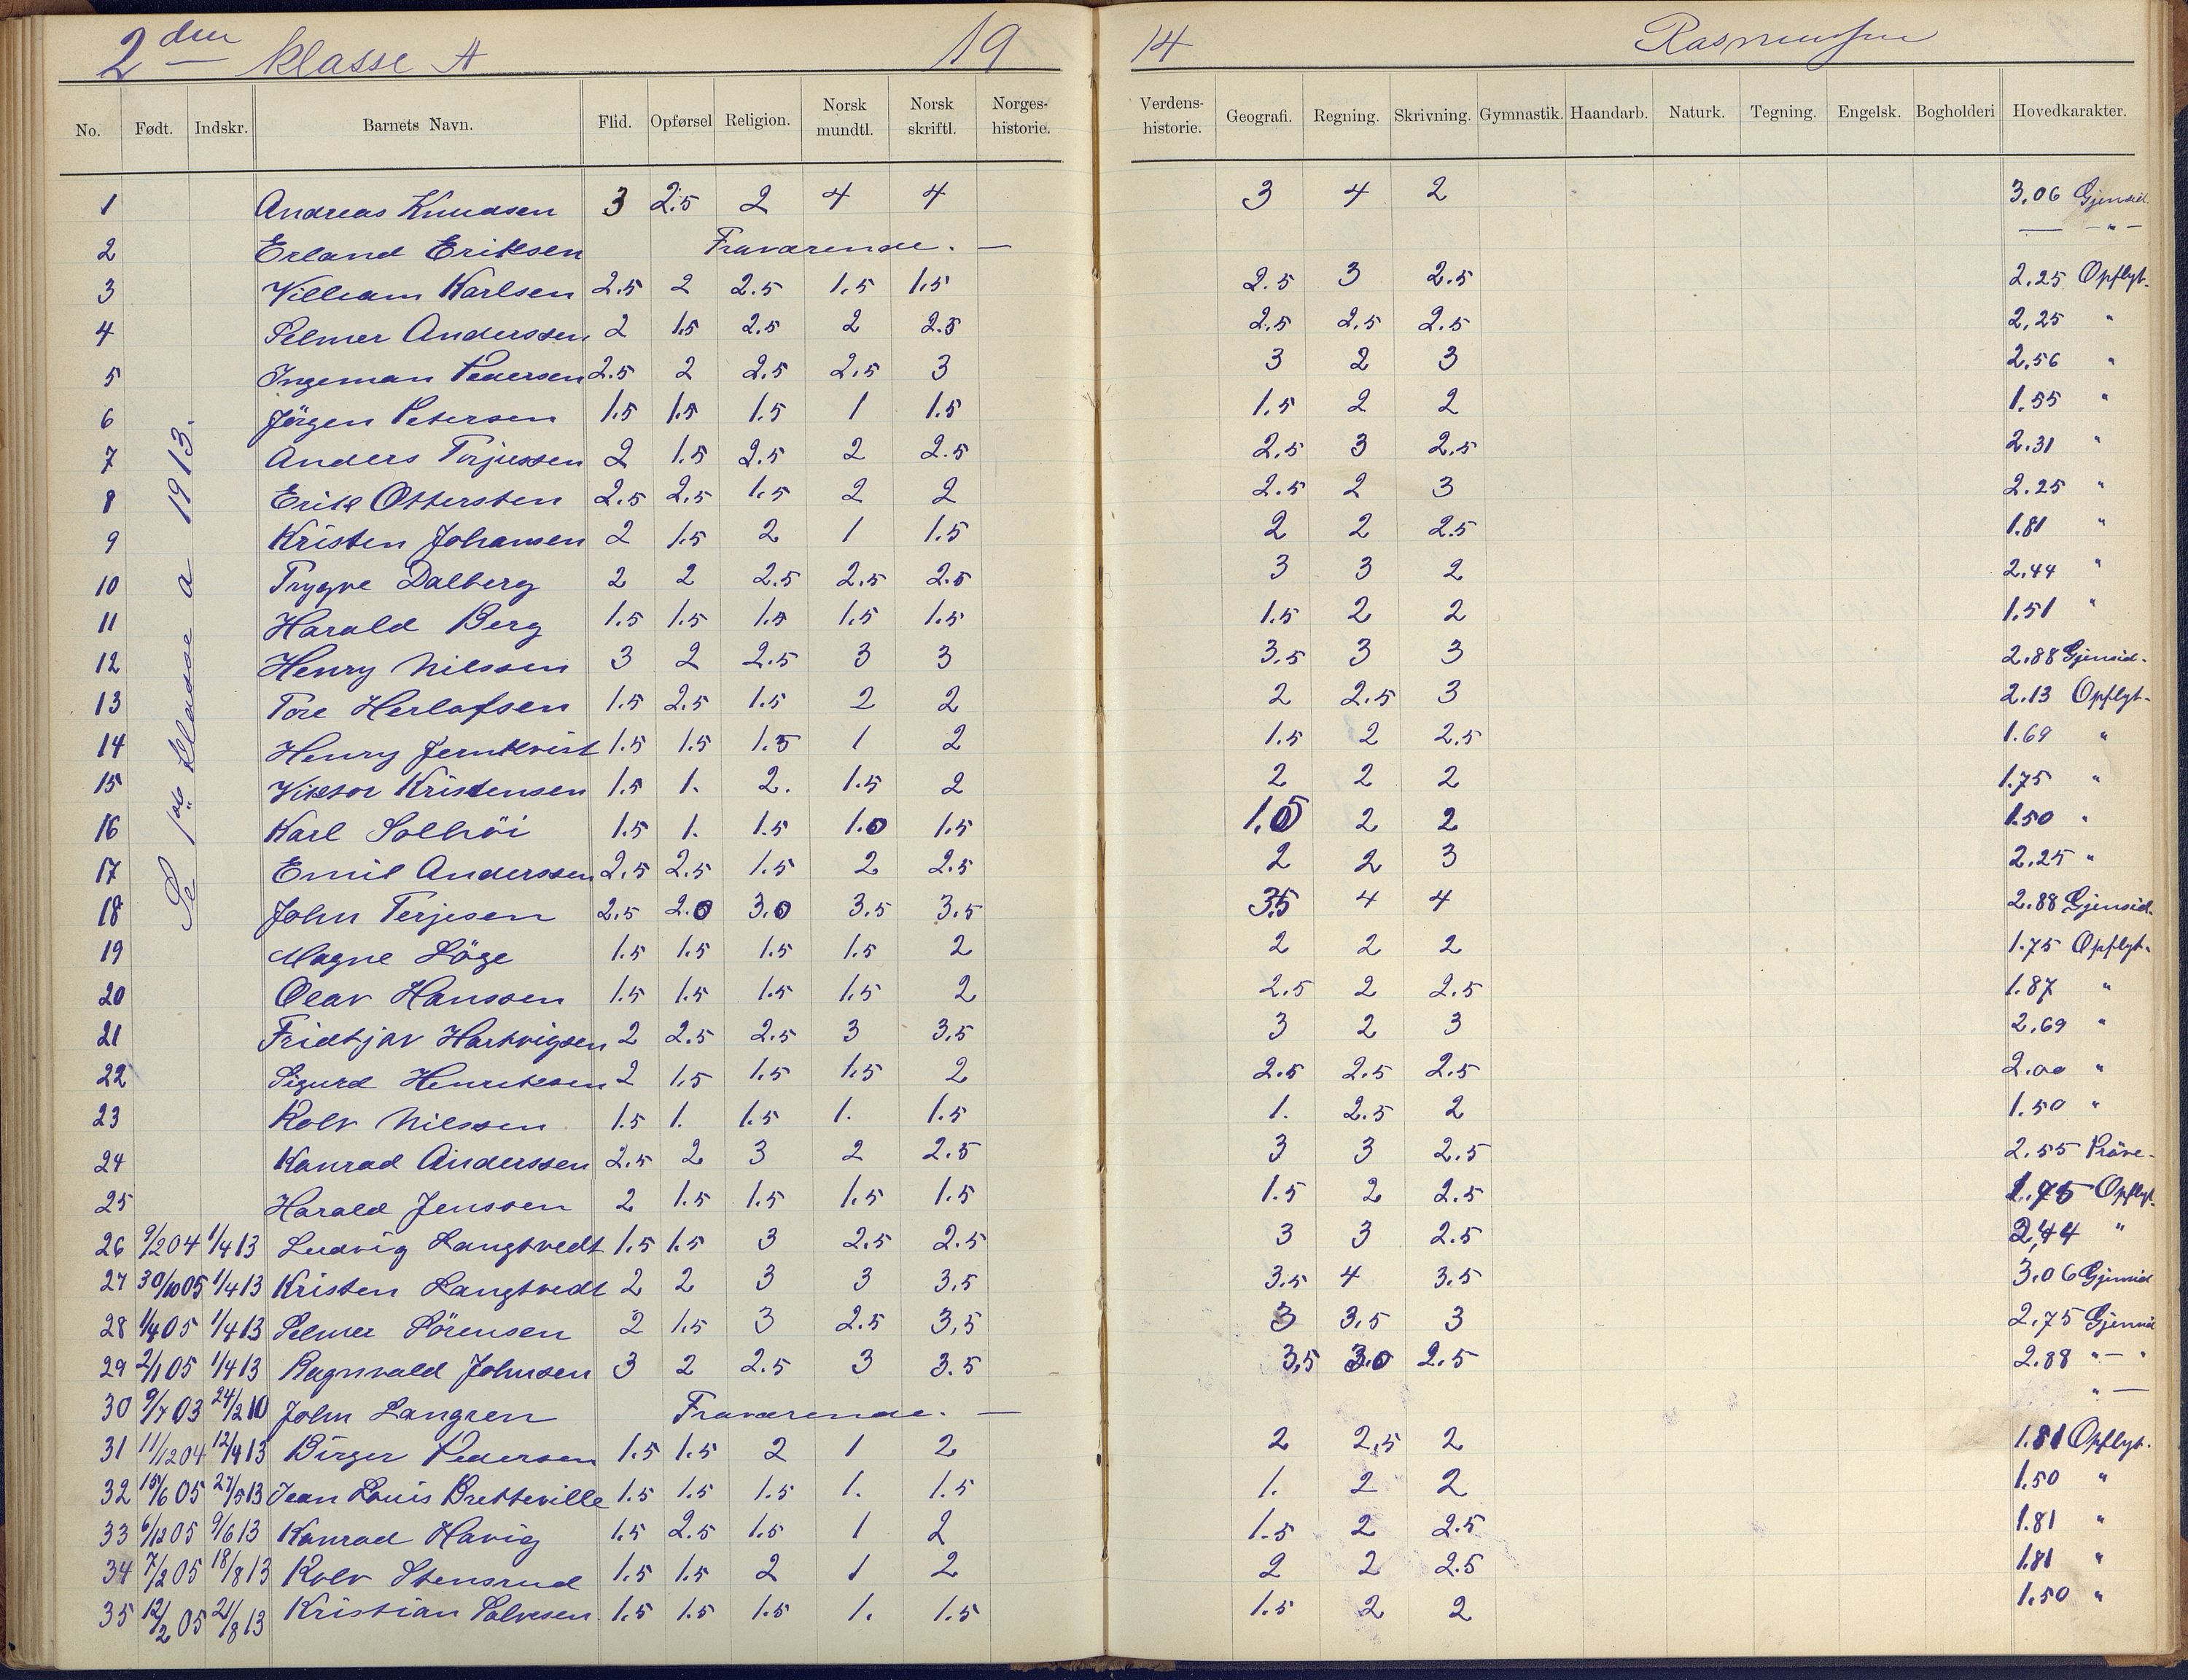 2den klasse A 19 14 Rasmussen
No. Født. Indskr. Barnets Navn. Flid. Opførsel Religion. Norsk mundtl. Norsk skriftl. Norges-historie. Verdens-historie. Geografi. Regning. Skrivning. Gymnastik. Haandarb. Naturk. Tegning. Engelsk. Bogholderi Hovedkarakter.
Se 1ste klasse a 1913.
1 Andreas Knudsen 3 2.5 2 4 4 3 4 2 3.06 Gjensid.
2 Erland Eriksen Fraværende. — — - " -
3 William Karlsen 2.5 2 2.5 1.5 1.5 2.5 3 2.5 2.25 Opflyt.
4 Selmer Anderssen 2 1.5 2.5 2 2.5 2.5 2.5 2.5 2.25 "
5 Ingeman Pedersen 2.5 2 2.5 2.5 3 3 2 3 2.56 "
6 Jörgen Petersen 1.5 1.5 1.5 1 1.5 1.5 2 2 1.55 "
7 Anders Torjussen 2 1.5 2.5 2 2.5 2.5 3 2.5 2.31 "
8 Erik Ottersten 2.5 2.5 1.5 2 2 2.5 2 3 2.25 "
9 Kristen Johansen 2 1.5 2 1 1.5 2 2 2.5 1.81 "
10 Trygve Dalberg 2 2 2.5 2.5 2.5 3 3 2 2.44 "
11 Harald Berg 1.5 1.5 1.5 1.5 1.5 1.5 2 2 1.51 "
12 Henry Nilssen 3 2 2.5 3 3 3.5 3 3 2.88 Gjensid.
13 Tore Herlofsen 1.5 2.5 1.5 2 2 2 2.5 3 2.13 Opflyt.
14 Henry Jernkvist 1.5 1.5 1.5 1 2 1.5 2 2.5 1.69 "
15 Viktor Kristensen 1.5 1. 2. 1.5 2 2 2 2 1.75 "
16 Karl Solhöi 1.5 1. 1.5 1.0 1.5 1.5 2 2 1.50 "
17 Emil Anderssen 2.5 2.5 1.5 2 2.5 2 2 3 2.25 "
18 John Terjesen 2.5 2.0 3.0 3.5 3.5 3.5 4 4 2.88 Gjensid.
19 Magne Löge 1.5 1.5 1.5 1.5 2 2 2 2 1.75 Opflyt.
20 Olav Hanssen 1.5 1.5 1.5 1.5 2 2.5 2 2.5 1.87 "
21 Fridtjov Hartvigsen 2 2.5 2.5 3 3.5 3 2 3 2.69 "
22 Sigurd Henriksen 2 1.5 1.5 1.5 2 2.5 2.5 2.5 2.00 "
23 Rolv Nilssen 1.5 1. 1.5 1. 1.5 1. 2.5 2 1.50 "
24 Konrad Anderssen 2.5 2 3 2 2.5 3 3 2.5 2.55 Pröve.
25 Harald Jenssen 2 1.5 1.5 1.5 1.5 1.5 2 2.5 1.75 Opflyt.
26 9/2 04 1/4 13 Ludvig Langtvedt 1.5 1.5 3 2.5 2.5 3 3 2.5 2,44 "
27 30/10 05 1/4 13 Kristen Langtvedt 2 2 3 3 3.5 3.5 4 3.5 3.06 Gjensid
28 1/4 05 1/4 13 Selmer Sörensen 2 1.5 3 2.5 3,5 3 3.5 3 2.75 Gjensid
29 2/1 05 1/4 13 Ragnvald Johnsen 3 2 2.5 3 3.5 3,5 3.0 2.5 2.88 " — "
30 9/7 03 24/2 10 John Langren Fraværende. — " —
31 11/12 04 12/4 13 Birger Pedersen 1.5 1.5 2 1 2 2 2,5 2 1.81 Opflyt.
32 15/6 05 27/5 13 Jean Louis Bretteville 1.5 1.5 1.5 1. 1.5 1. 2 2 1.50 "
33 6/12 05 9/6 13 Konrad Havig 1.5 2.5 1.5 1 2 1.5 2 2.5 1.81 "
34 7/2 05 18/8 13 Rolv Stensrud 1.5 1.5 2 1 2 2 2 2.5 1.81 "
35 12/2 05 21/8 13 Kristian Salvesen. 1.5 1.5 1.5 1. 1.5 1.5 2 2 1.50 "